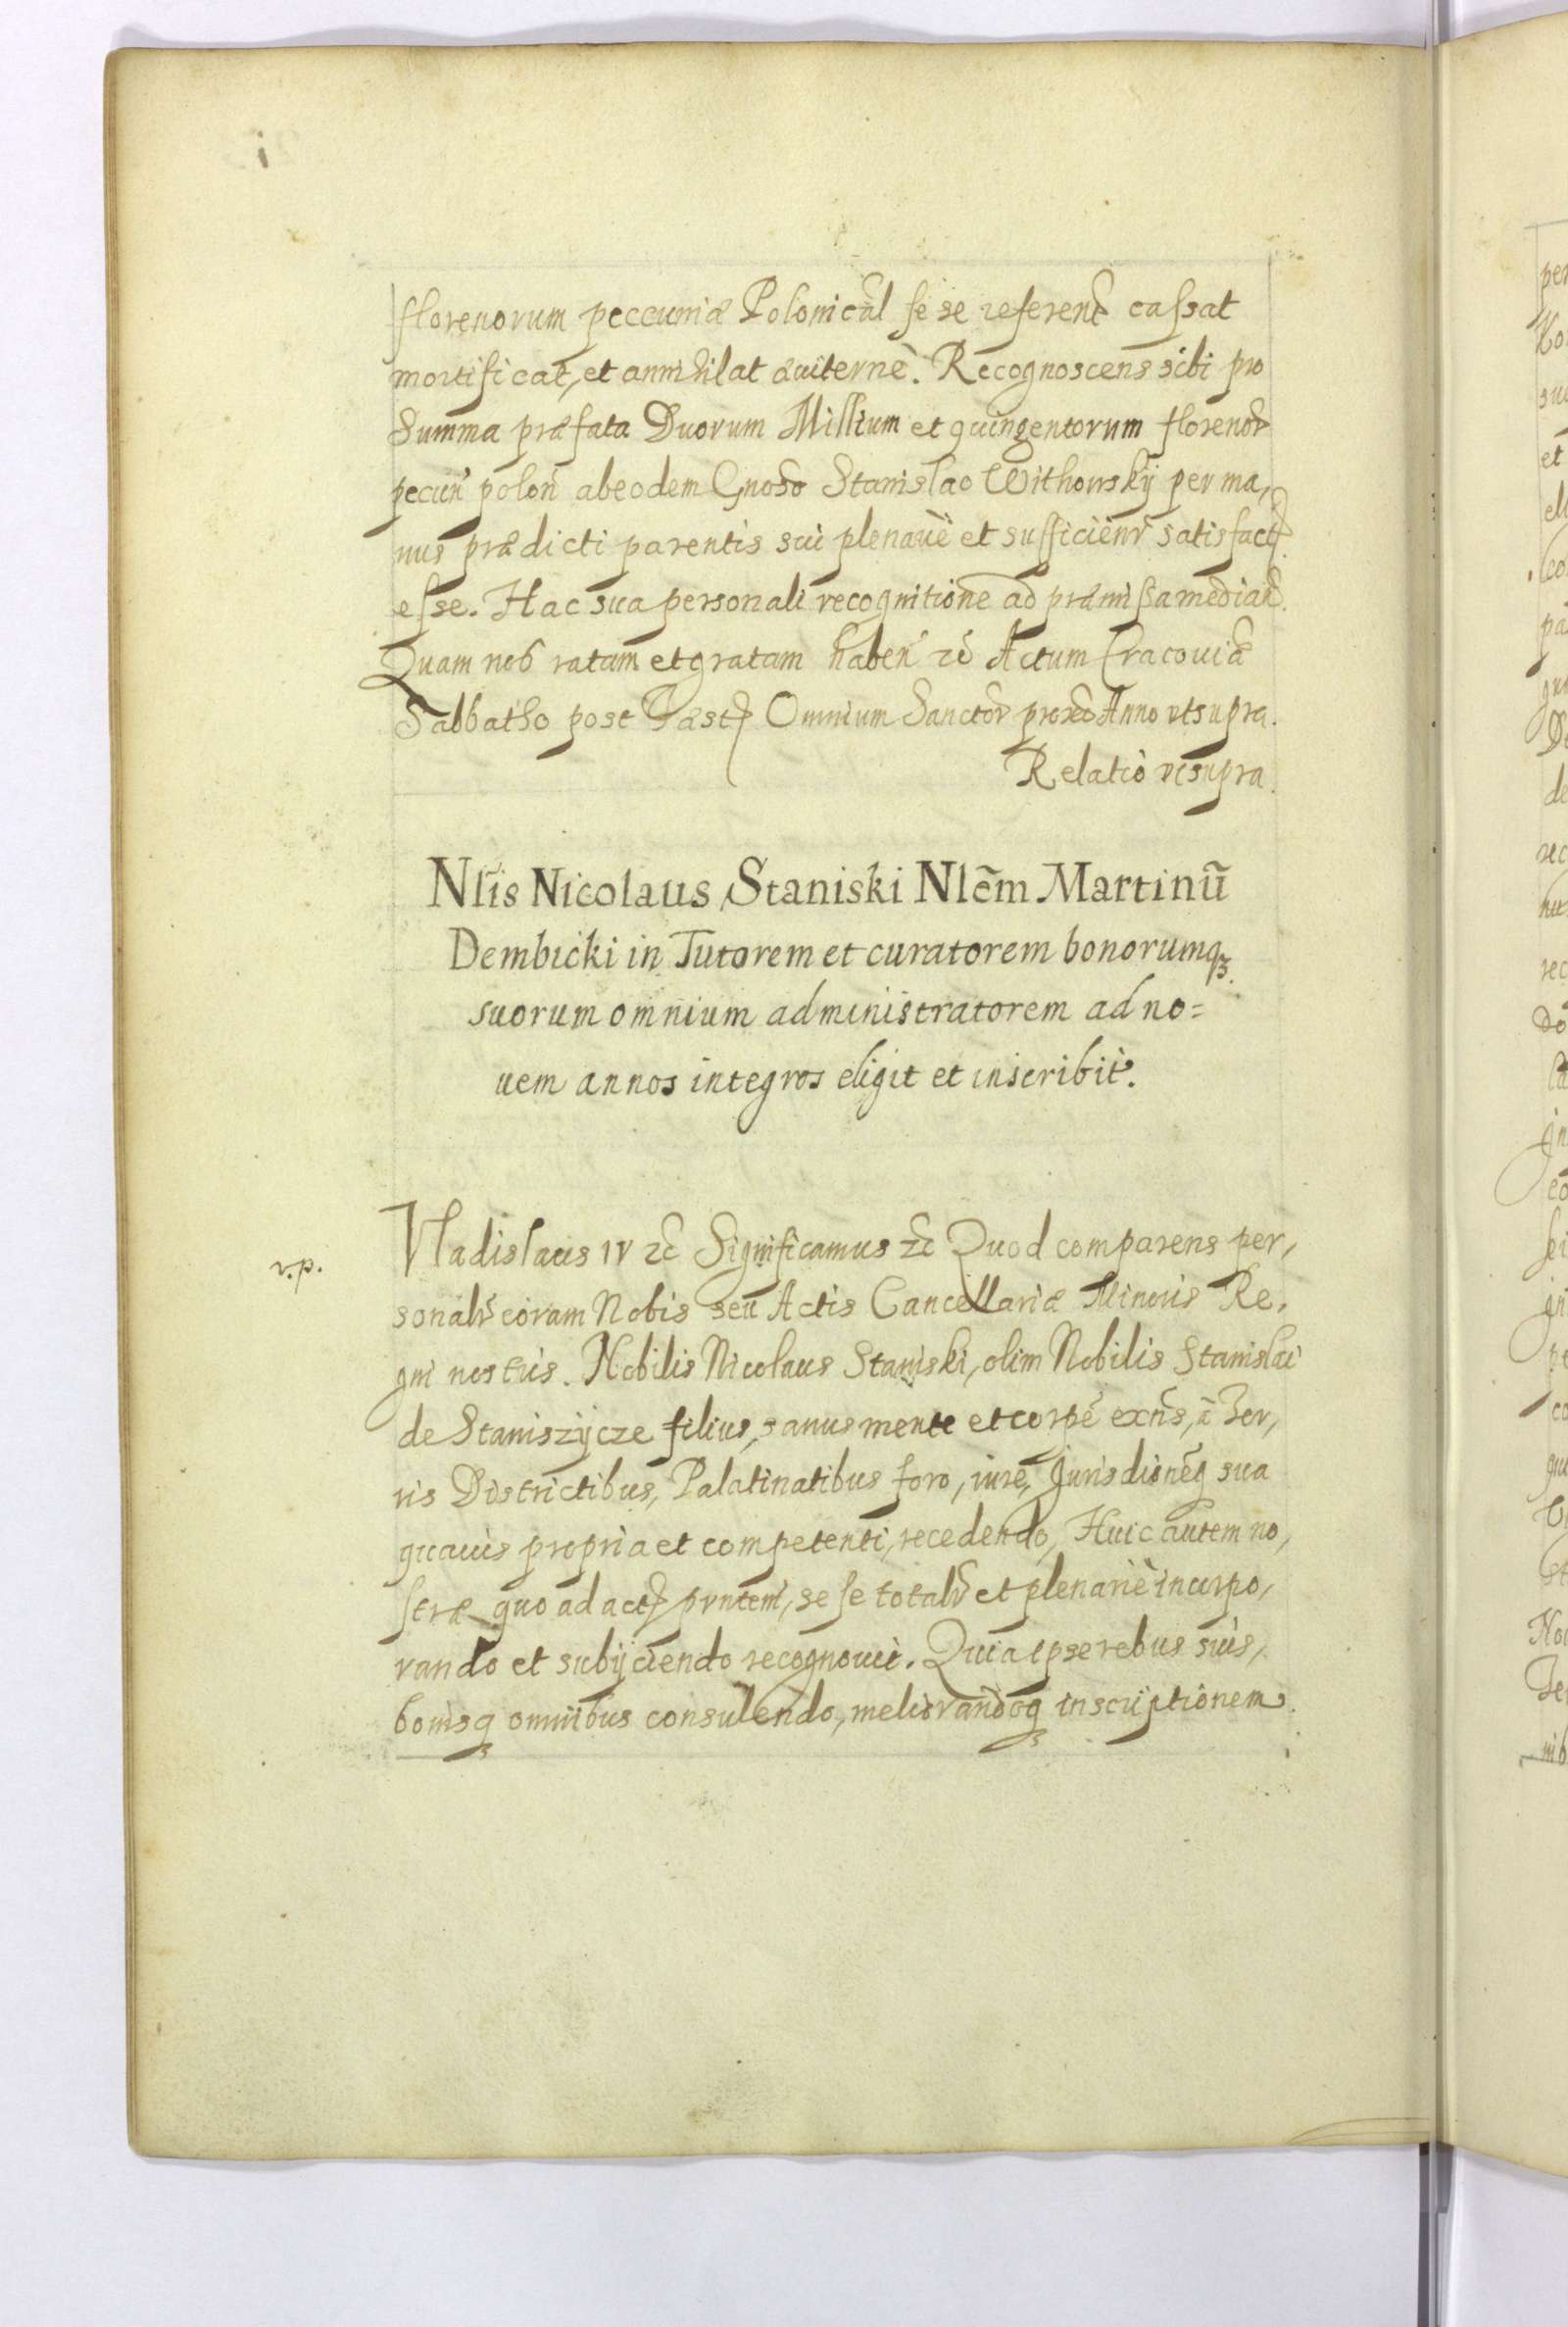 florenorum peccuniæ Polonicāl se se referent̃ cassat
mortificat, et annihilat æuiternè. Recognoscens sibi pro
Summa præfata Duorum Millium et quingentorum florenor̃
pecuñ poloñ ab eodem Gnoso Stanislao Withowskÿ per ma,
nus prædicti parentis sui plenariè et sufficientr̃ satisfact̃
esse. Hac sua personali recognitione ad præmissa median̄.
Quam nos ratam et gratam habeñ zc̃ Actum Cracouiæ
Sabbatho post Fest̃ Omnium Sanctor̃ proxo Anno vt supra.
Relatio vt supra.
Nlis Nicolaus Staniski Nlēm Martinū
Dembicki in Tutorem et curatorem bonorumqȝ
suorum omnium administratorem ad no=
uem annos integros eligit et inscribit.
v.p.
Vladislaus IV zc̃ Significamus zc̃ Quod comparens per,
sonalr̃ coram Nobis seu Actis Cancellariæ Minoris Re,
gni nostris. Nobilis Nicolaus Staniski, olim Nobilis Stanislai
de Staniszÿcze filius, sanus mente et corpẽ exñs, à Ter,
ris Districtibus, Palatinatibus foro, iurẽ, Jurisdionẽq sua
quauis propria et competenti, recedendo, Huic autem no,
stræ quo ad act̃ pñtem, se se totalr̃ et plenariè incorpo,
rando et subÿciendo recognouit. Quia ipse rebus suis,
bonisq omnibus consulendo, meliorandoq inscriptionem